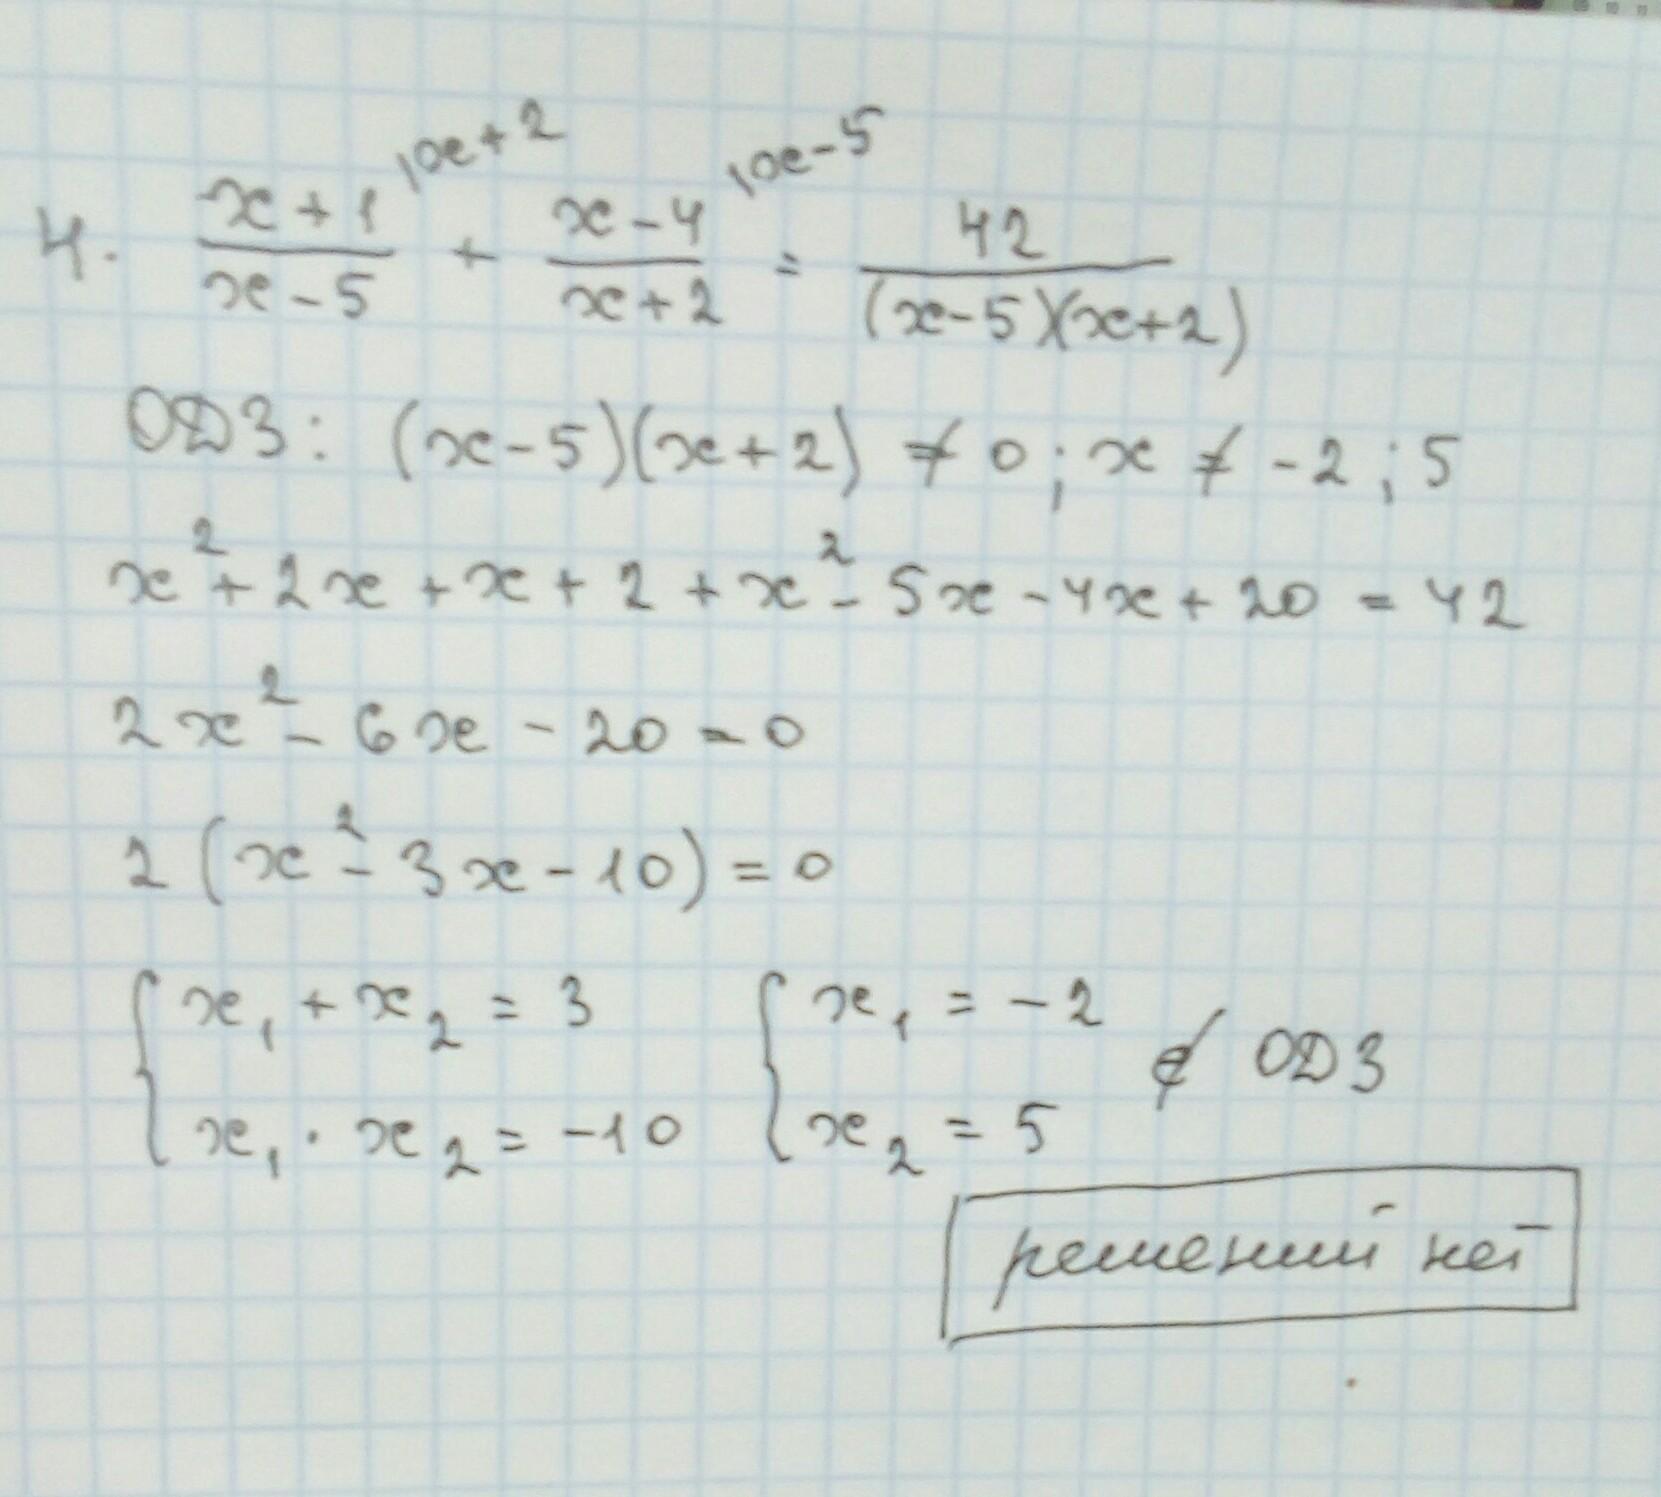 4. (x+1)/(x-5) |x+2 + (x-4)/(x+2) |x-5 = 42/((x-5)(x+2))
ОДЗ: (x-5)(x+2) ≠ 0; x ≠ -2; 5
x² + 2x + x + 2 + x² - 5x - 4x + 20 = 42
2x² - 6x - 20 = 0
2(x² - 3x - 10) = 0
{ x₁ + x₂ = 3 { x₁ = -2
x₁ · x₂ = -10 x₂ = 5 ∉ ОДЗ
решений нет